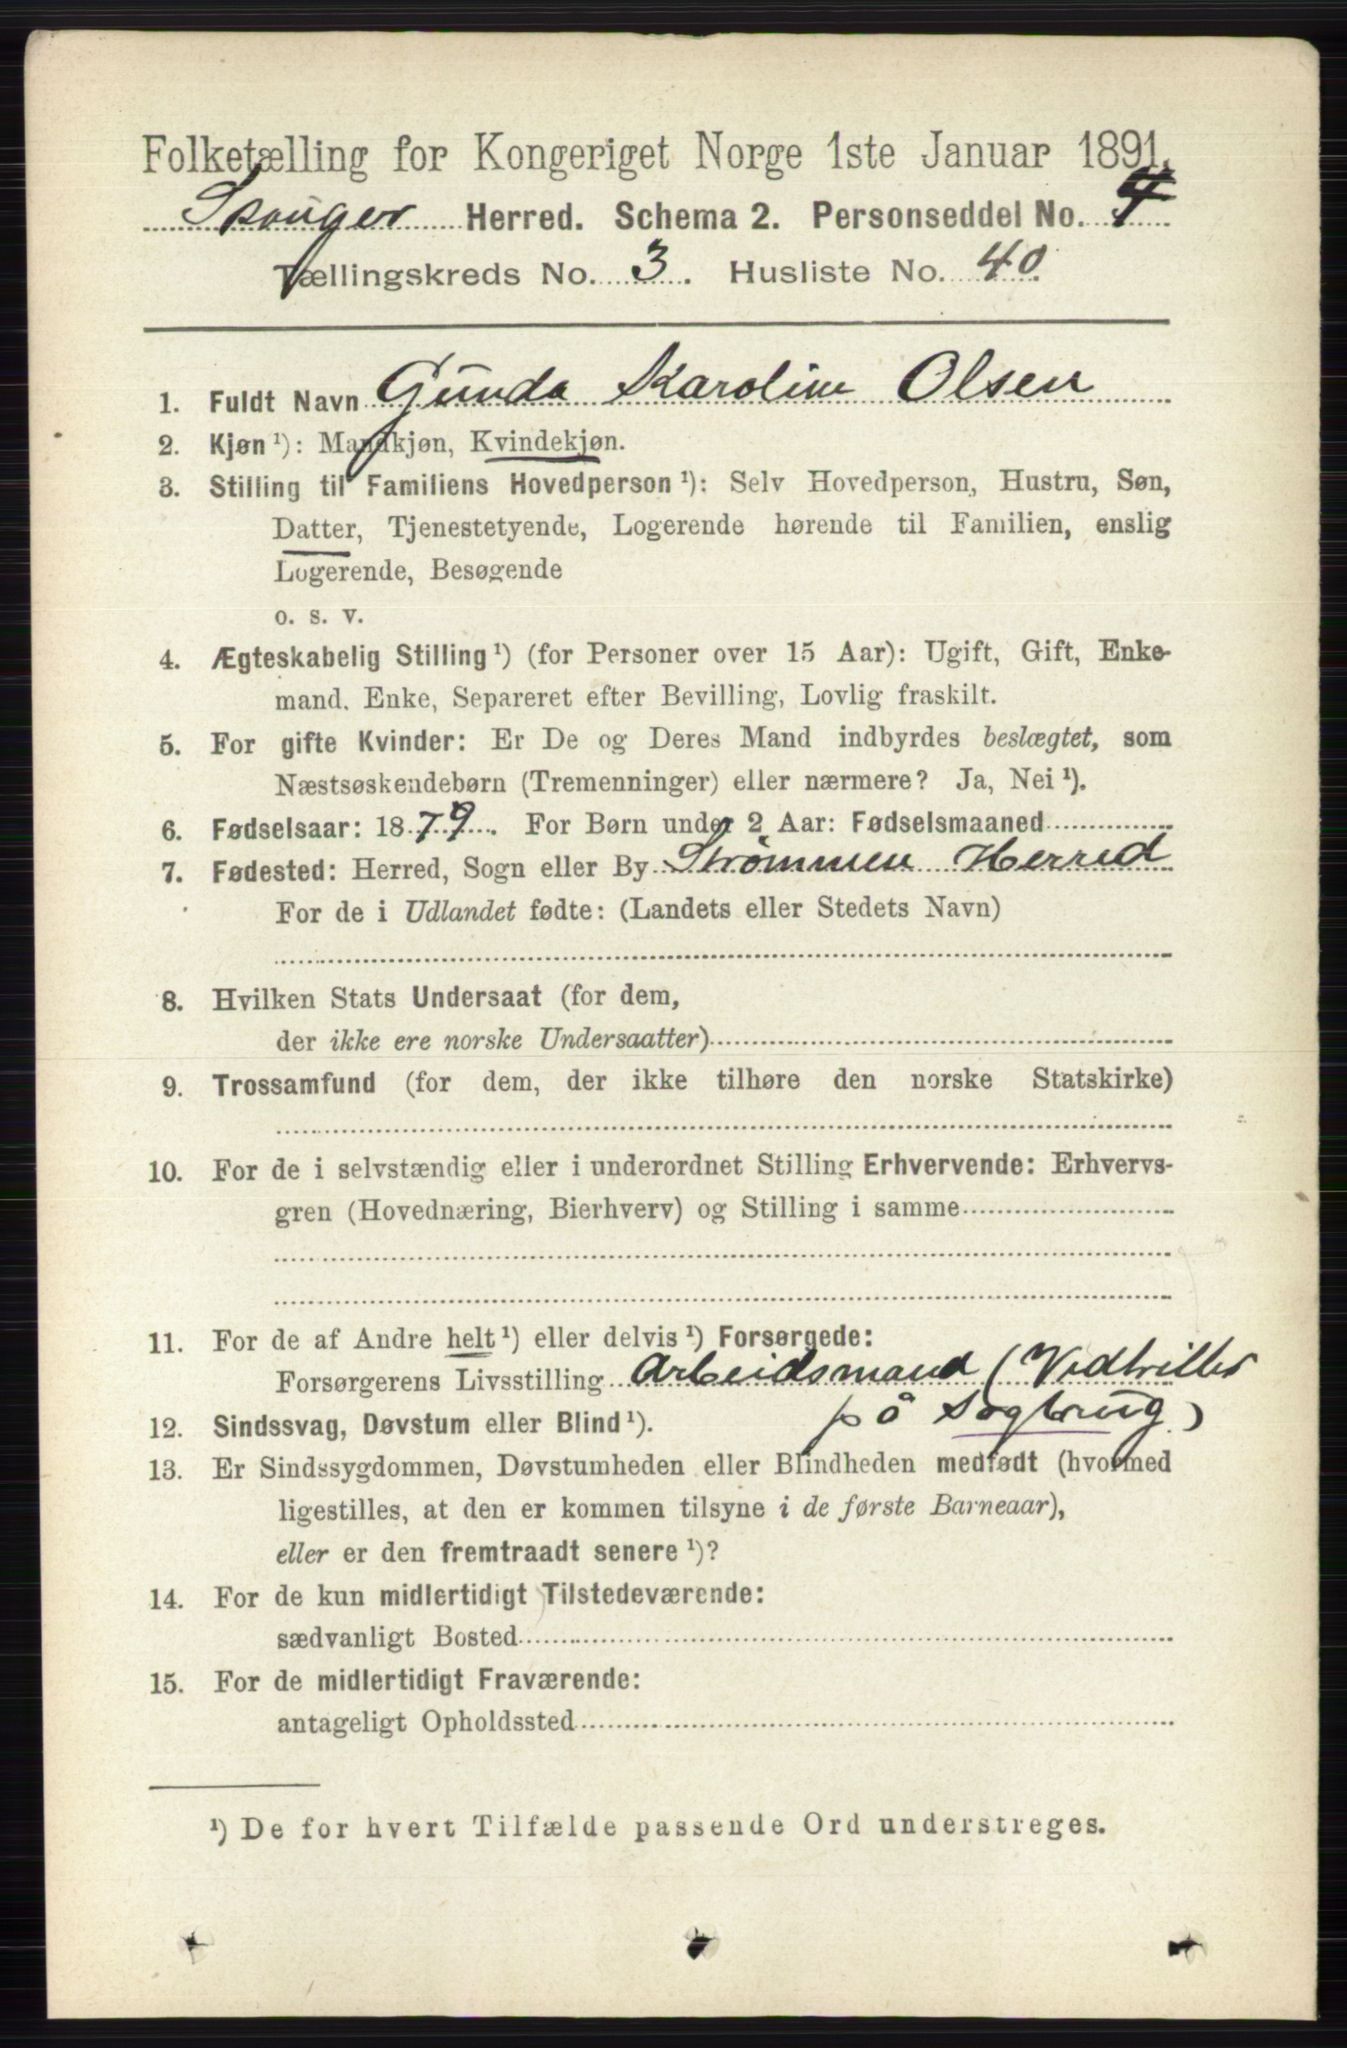 Folketælling for Kongeriget Norge 1ste Januar 1891.
Skouger Herred. Schema 2. Personseddel No. 4
Tællingskreds No. 3. Husliste No. 40
1. Fuldt Navn Gunda Karoline Olsen
2. Kjøn ¹): Mandkjøn, Kvindekjøn.
3. Stilling til Familiens Hovedperson ¹): Selv Hovedperson, Hustru, Søn,
Datter, Tjenestetyende, Logerende hørende til Familien, enslig
Logerende, Besøgende
o. s. v.
4. Ægteskabelig Stilling ¹) (for Personer over 15 Aar): Ugift, Gift, Enke-
mand, Enke, Separeret efter Bevilling, Lovlig fraskilt.
5. For gifte Kvinder: Er De og Deres Mand indbyrdes beslægtet, som
Næstsøskendebørn (Tremenninger) eller nærmere? Ja, Nei ¹).
6. Fødselsaar: 1879. For Børn under 2 Aar: Fødselsmaaned
7. Fødested: Herred, Sogn eller By Strømmen Herred
For de i Udlandet fødte: (Landets eller Stedets Navn)
8. Hvilken Stats Undersaat (for dem,
der ikke ere norske Undersaatter)
9. Trossamfund (for dem, der ikke tilhøre den norske Statskirke)
10. For de i selvstændig eller i underordnet Stilling Erhvervende: Erhvervs-
gren (Hovednæring, Bierhverv) og Stilling i samme
11. For de af Andre helt ¹) eller delvis ¹) Forsørgede:
Forsørgerens Livsstilling Arbeidsmand (Vedtriller
på Sagbrug)
12. Sindssvag, Døvstum eller Blind ¹).
13. Er Sindssygdommen, Døvstumheden eller Blindheden medfødt (hvormed
ligestilles, at den er kommen tilsyne i de første Barneaar),
eller er den fremtraadt senere ¹)?
14. For de kun midlertidigt Tilstedeværende:
sædvanligt Bosted
15. For de midlertidigt Fraværende:
antageligt Opholdssted
¹) De for hvert Tilfælde passende Ord understreges.